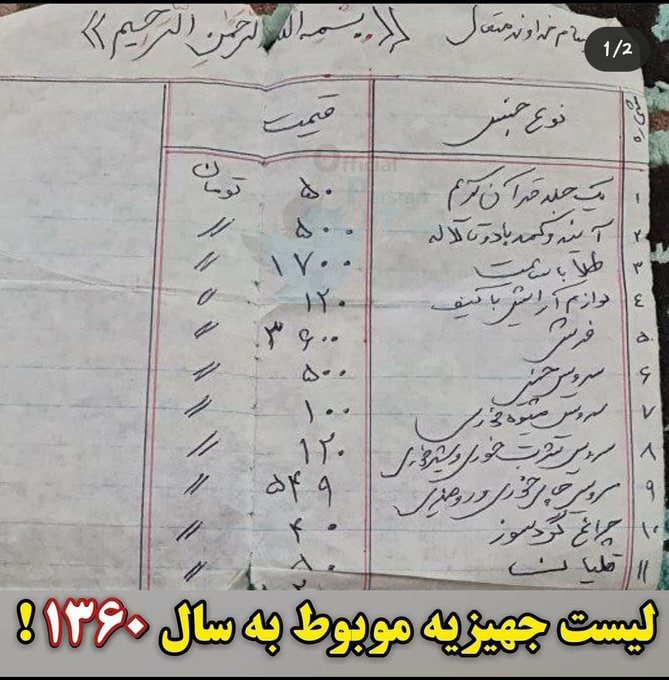 بنام خداوند متعال 《بسم الله الرحمن الرحیم》
1/2
شماره نوع جنس قیمت
Official
Persian
۱ یک جلد قرآن کریم ۵۰ تومان
۲ آئینه و شمعدان با دو تا لاله ۵۰۰ //
۳ طلا با ساعت ۱۷۰۰ //
٤ لوازم آرایش با کیف ۱۲۰ //
۵ فرش ۳۶۰۰ //
۶ سرویس چینی ۵۰۰ //
۷ سرویس میوه خوری ۱۰۰ //
۸ سرویس شربت خوری و شیرخوری ۱۲۰ //
۹ سرویس چای خوری و ۵۴۹ //
۱۰ چراغ گردسوز ۴۰ //
۱۱ قلیان ۸۰ //
لیست جهیزیه موبوط به سال ۱۳۶۰ !